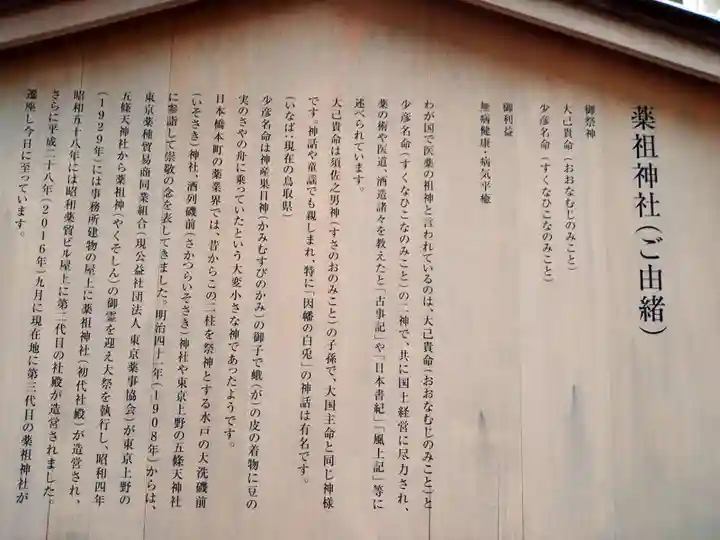 薬祖神社(ご由緒)
御祭神
大己貴命(おおなむじのみこと)
少彦名命(すくなひこなのみこと)
御利益
無病健康・病気平癒
わが国で医薬の祖神と言われているのは、大己貴命(おおなむじのみこと)と
少彦名命(すくなひこなのみこと)の二神で、共に国土経営に尽力され、
薬の術や医道、酒造諸々を教えたと「古事記」や「日本書紀」「風土記」等に
述べられています。
大己貴命は須佐之男神(すさのおのみこと)の子孫で、大国主命と同じ神様
です。神話や童謡でも親しまれ、特に「因幡の白兎」の神話は有名です。
(いなば:現在の鳥取県)
少彦名命は神産巣日神(かみむすびのかみ)の御子で蛾(が)の皮の着物に豆の
実のさやの舟に乗っていたという大変小さな神であったようです。
日本橋本町の薬業界では、昔からこの二柱を祭神とする水戸の大洗磯前
(いそさき)神社、酒列磯前(さかつらいそさき)神社や東京上野の五條天神社
に参詣して崇敬の念を表してきました。明治四十一年(1908年)からは、
東京薬種貿易商同業組合(現公益社団法人 東京薬事協会)が東京上野の
五條天神社から薬祖神(やくそしん)の御霊を迎え大祭を執行し、昭和四年
(1929年)には事務所建物の屋上に薬祖神社(初代社殿)が造営され、
昭和五十八年には昭和薬貿ビル屋上に第二代目の社殿が造営されました。
さらに平成二十八年(2016年)九月に現在地に第三代目の薬祖神社が
遷座し今日に至っています。